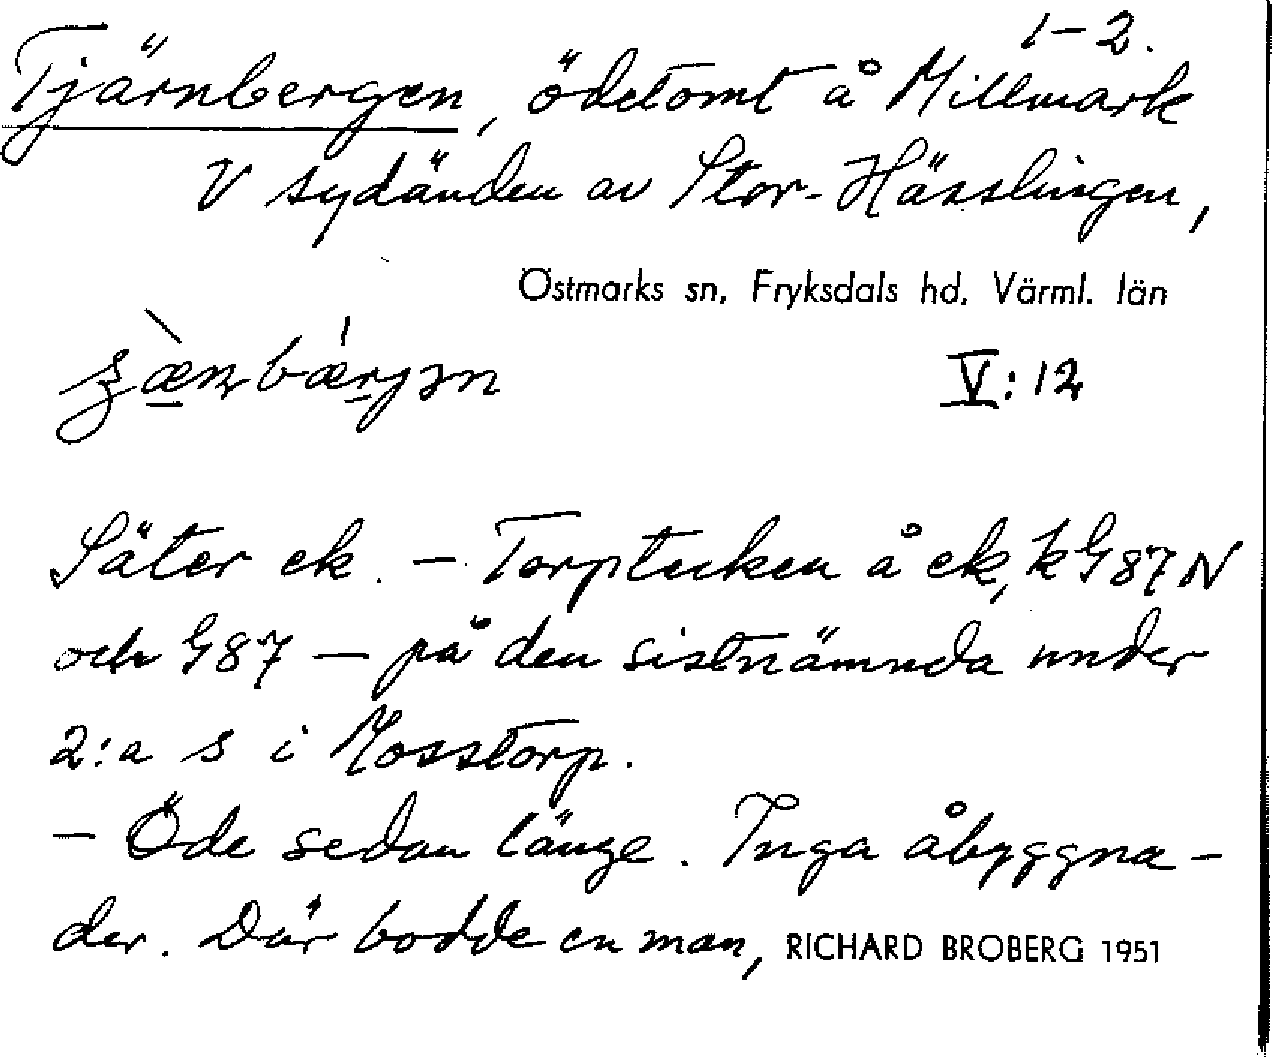 1-2.
Tjärnbergen, ödetomt å Millmark
V sydänden av Stor-Hässlingen,
Östmarks sn, Fryksdals hd, Värml. län
V:12
Säter ek. - Torptecken å ek, k G87 N
och G87 - på den sistnämnda under
2:a s i Mosstorp.
- Öde sedan länge. Inga åbyggna-
der. Där bodde en man, RICHARD BROBERG 1951